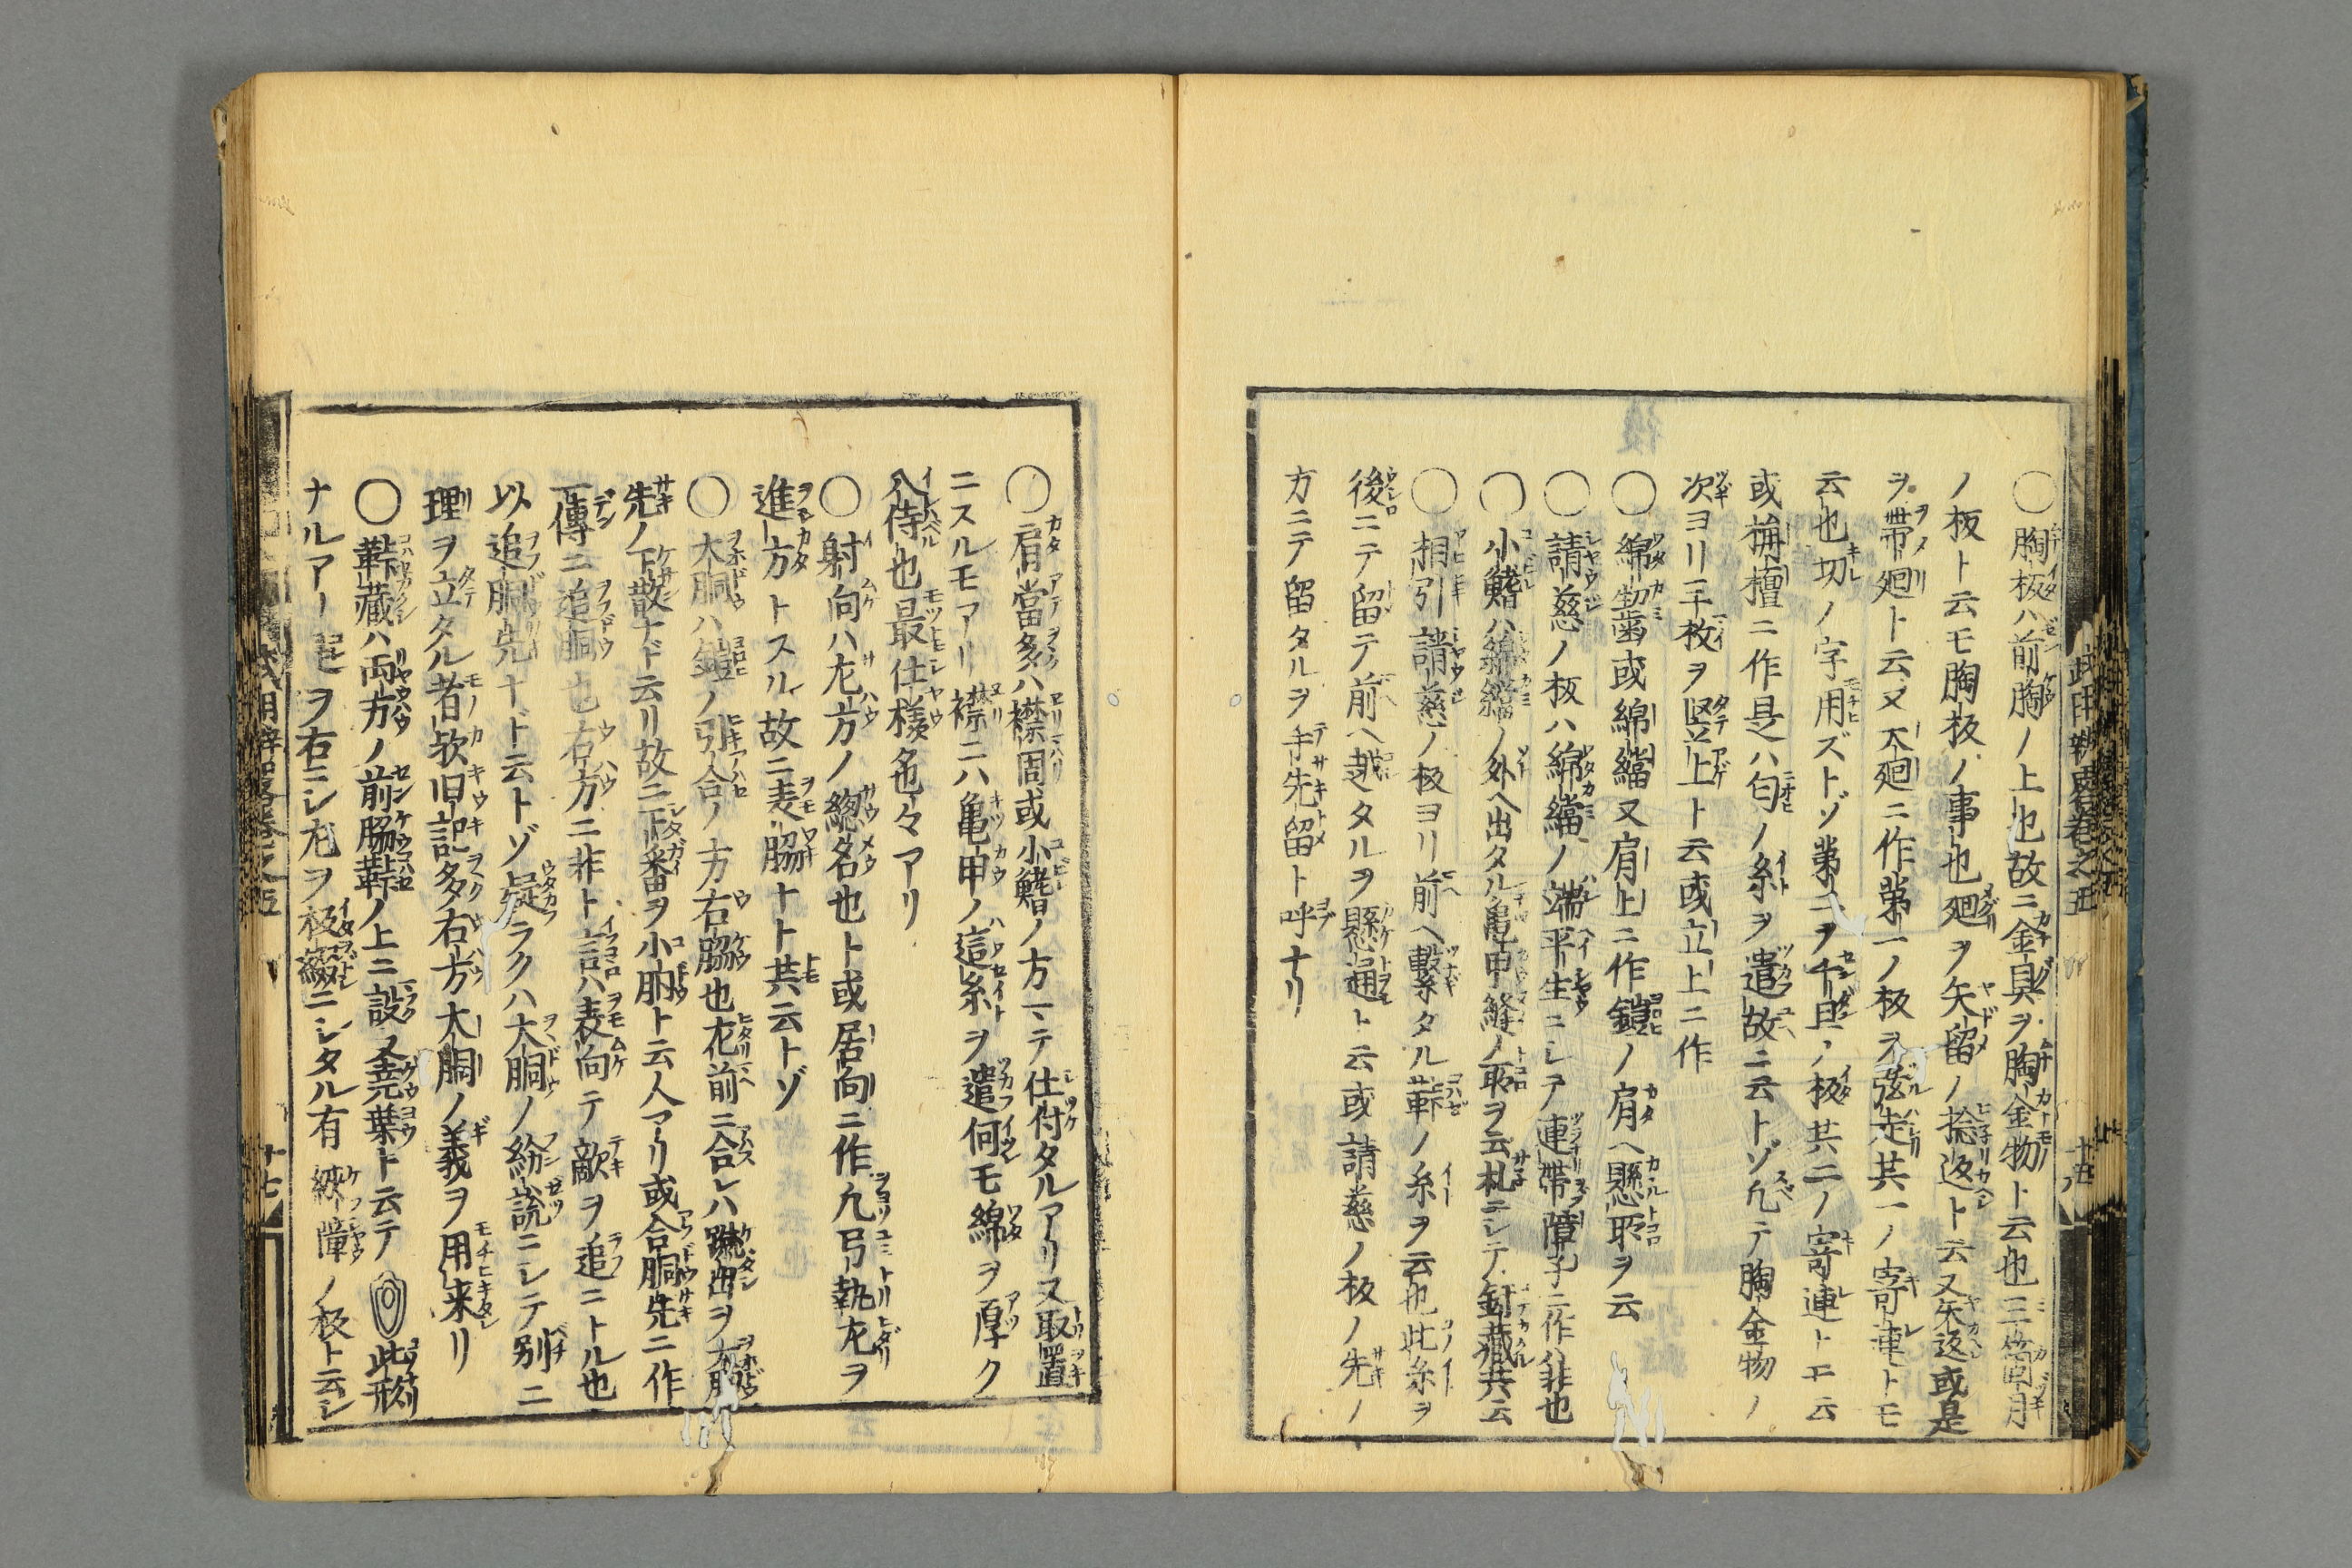 ○胸板ハ前胸ノ上也故ニ金具ヲ胸金物ト云也三箇月
ノ板ト云モ胸板ノ事也廻ヲ矢留ノ捻返ト云又矢返或是
ヲ帯廻ト云又廻ニ作第一ノ板ヲ弦走共一ノ寄連トモ
云也切ノ字用ズトゾ第二ヲ千旦ノ板共二ノ寄連トモ云
或栴檀ニ作是ハ匂ノ糸ヲ遣故ニ云トゾ凡テ胸金物ノ
次ヨリ三枚ヲ竪上ト云或立上ニ作
○綿齧或綿繿又肩上ニ作鎧ノ肩ヘ懸所ヲ云
○請慈ノ板ハ綿繿ノ端平生ニシテ連帯障子ニ作ハ非也
○小鰭ハ綿繿ノ外ヘ出タル亀甲縫ノ所ヲ云札ニシテ釘藏共云
○相引請慈ノ板ヨリ前ヘ繋タル鞐ノ糸ヲ云也此糸ヲ
後ニテ留テ前ヘ越タルヲ懸通ト云或請慈ノ板ノ先ノ
方ニテ留タルヲ手先留ト呼ナリ
○肩當多ハ襟周或小鰭ノ方ニテ仕付タルアリ又取置
ニスルモアリ襟ニハ亀甲ノ這糸ヲ遣何モ綿ヲ厚ク
入侍也最仕様色々アリ
○射向ハ左方ノ總名也ト或居向ニ作凡弓執左ヲ
進ト方トスル故ニ表脇ナト共云トゾ
○大胴ハ鎧ノ引合ノ方右脇也左前ニ合レハ蹴出ヲ大胴
先ノ下散ナド云リ故ニ下番ヲ小胴ト云人アリ或合胴先ニ作
一傳ニ追胴也右方ニ非ト言ハ表向テ敵ヲ追ニトル也
以追胴先ナド云トゾ疑ラクハ大胴ノ紛説ニシテ別ニ
理ヲ立タル者欤旧記多右方大胴ノ義ヲ用来リ
○鞐藏ハ両方ノ前脇鞐ノ上ニ設ク葉ト云テ此形
ナルアリモヲ右ニシ左ヲ板ニシタル有 障ノ板ト云シ
十七